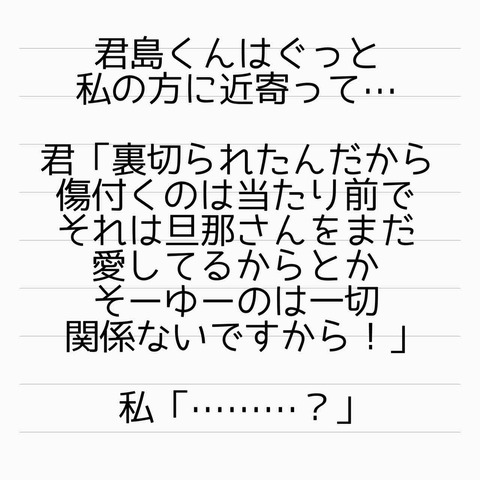 君島くんはぐっと
私の方に近寄って…
君「裏切られたんだから
傷付くのは当たり前で
それは旦那さんをまだ
愛してるからとか
そーゆーのは一切
関係ないですから！」
私「………？」